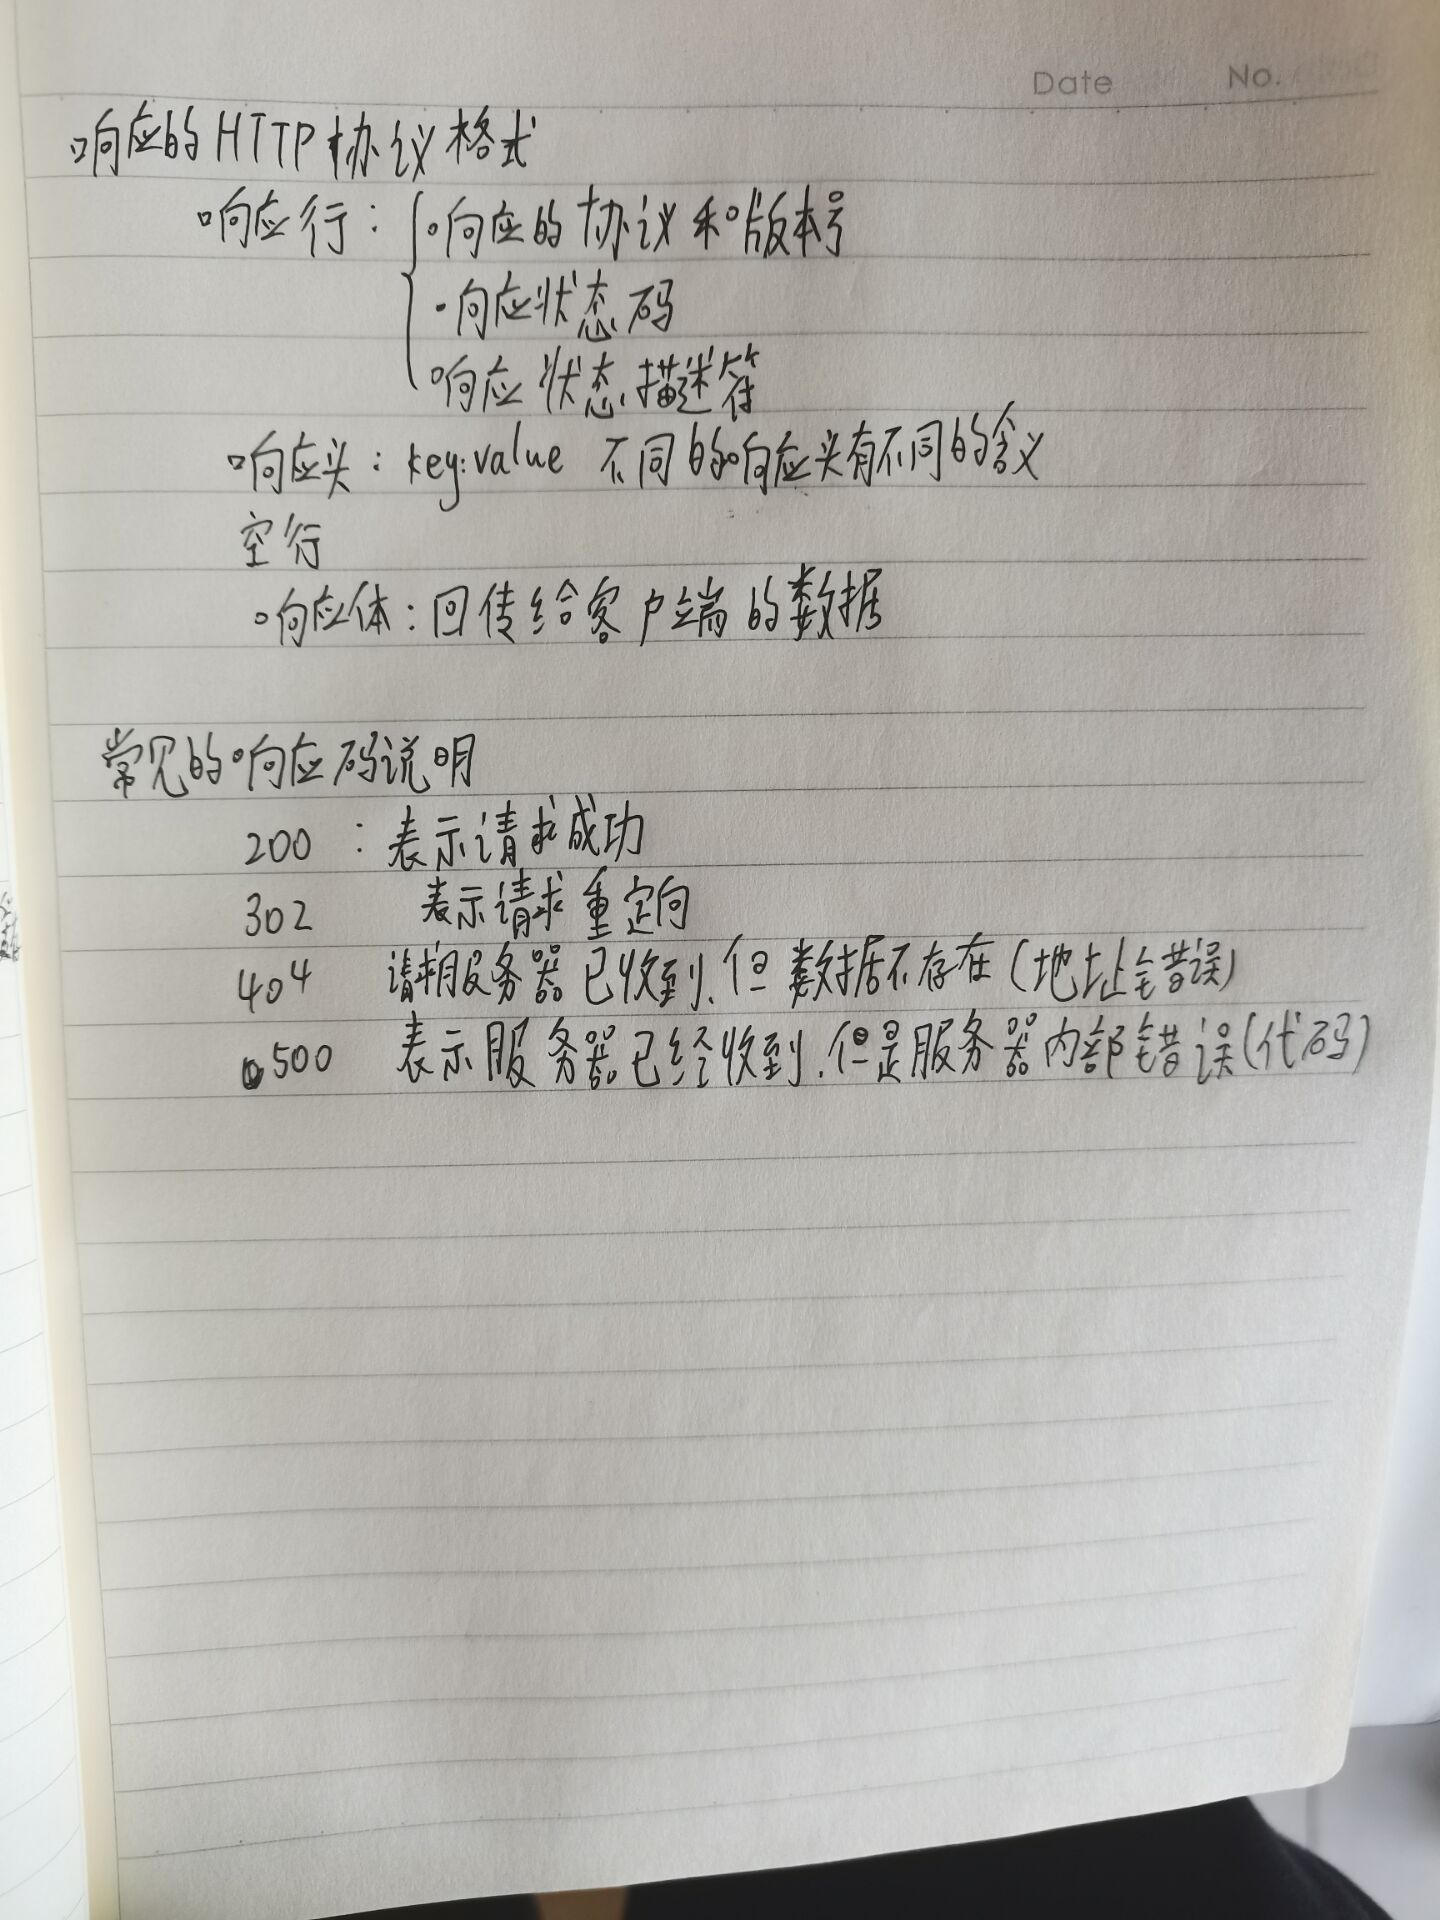 Date No.
响应的HTTP协议格式
响应行：响应的协议和版本号
响应状态码
响应状态描述符
响应头：key:value 不同的响应头有不同的含义
空行
响应体：回传给客户端的数据
常见的响应码说明
200 ：表示请求成功
302 表示请求重定向
404 请求服务器已收到，但数据不存在（地址错误）
500 表示服务器已经收到，但是服务器内部错误（代码）